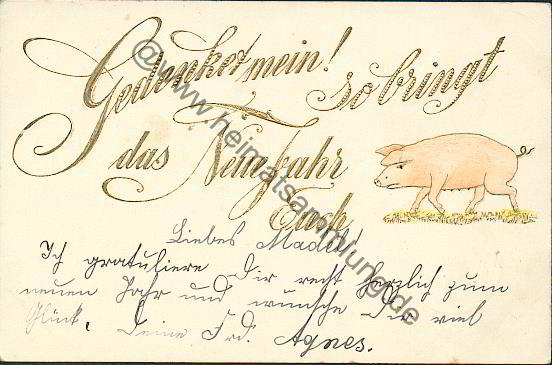 Gedenket mein! so bringt
das Neue Jahr
Euch
Liebes Madel!
Ich gratuliere Dir recht herzlich zum
neuen Jahr und wünsche Dir viel
Glück. Deine Frd. Agnes.
@www.heimatsammlung.de